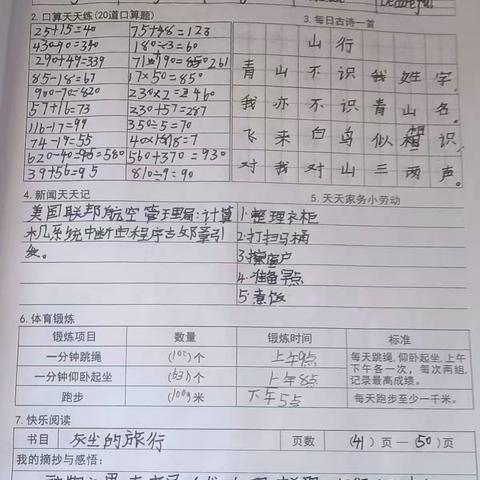 2. 口算天天练(20道口算题)
3. 每日古诗一首
25+15=40 75+48=123
430-90=340 180÷3=60
290+49=339
85-18=67 17×50=850
900-70=820 230×2=460
57+16=73 230+57=287
116-17=99 350÷5=70
74-19=55
620-40=580 560+370=930
39+56=95 810÷9=90
山行
青山不识我姓字,
我亦不识青山名。
飞来白鸟似相识,
对我对山三两声。
4. 新闻天天记
5. 天天家务小劳动
美国联邦航空管理局:计算
机系统中断由程序
1.整理衣柜
2.打扫马桶
3.擦窗户
4.准备早点
5.煮饭
6. 体育锻炼
锻炼项目 数量 锻炼时间 标准
一分钟跳绳 ( )个 上午9点
一分钟仰卧起坐 ( )个 上午8点
跑步 ( )米 下午5点
每天跳绳,仰卧起坐,上午
下午各一次,每次两组,
记录最高成绩。
每天跑步至少一千米。
7. 快乐阅读
书目 灰尘的旅行 页数 (41)页—(50)页
我的摘抄与感悟: